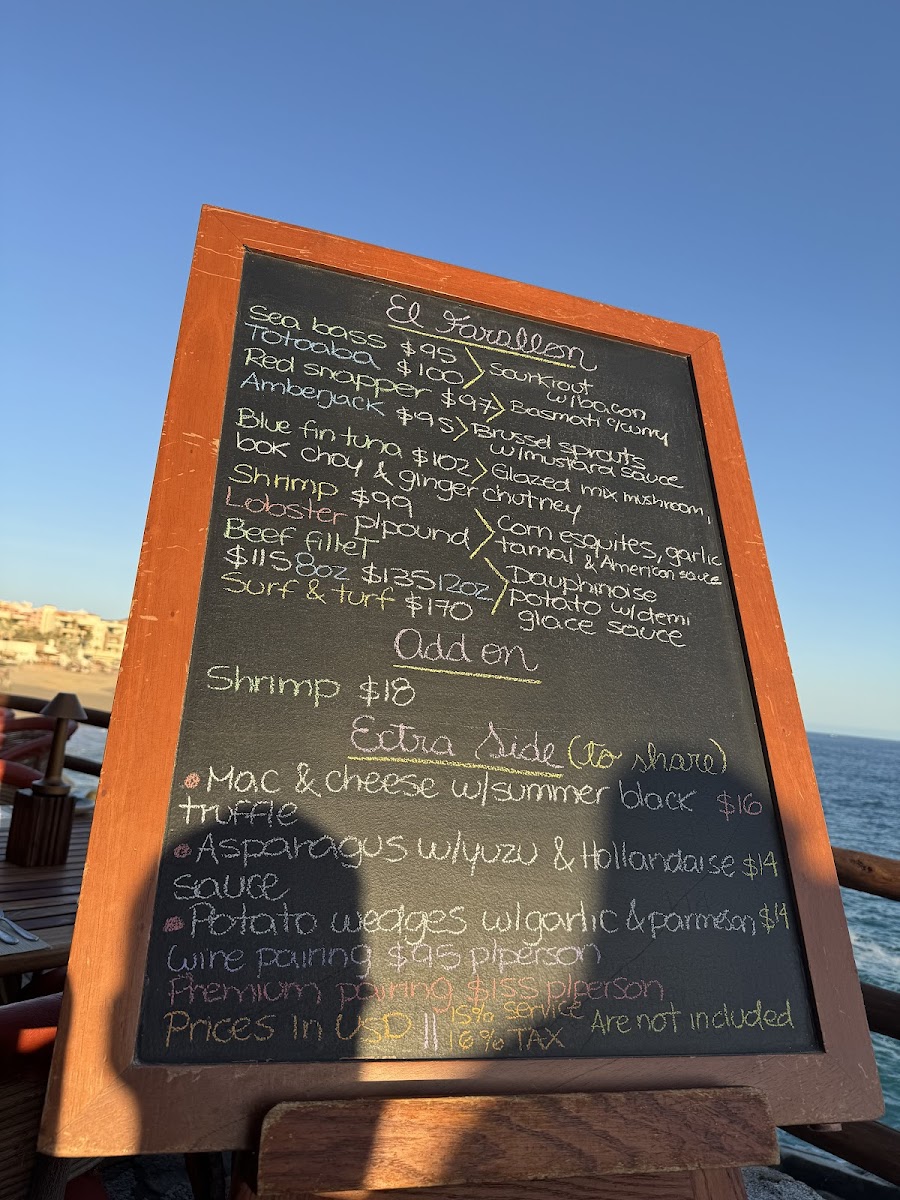 El Farallon
Sea bass $95
Totoaba $100
Sourkrout
w/bacon
Red snapper $97
Basmati c/curry
Amberjack $95
Brussel sprouts
w/mustard sauce
Blue fin tuna $102
Glazed mix mushroom,
bok choy & ginger chutney
Shrimp $99
Lobster p/pound
Corn esquites, garlic
tamal & American sauce
Beef fillet
$115 8oz $135 12oz
Surf & turf $170
Dauphinoise
potato w/demi
glace sauce
Add on
Shrimp $18
Extra Side (to share)
Mac & cheese w/summer black $16
truffle
Asparagus w/yuzu & Hollandaise $14
sauce
Potato wedges w/garlic & parmesan $14
Wine pairing $95 p/person
Premium pairing $155 p/person
Prices in USD || 15% service
16% TAX
Are not included